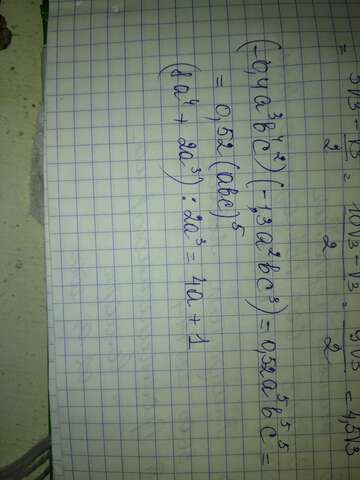 = 5√3 - √3/2 = 10√3 - √3/2 = 9√3/2 = 4,5√3
(-0,4a³b⁴c²)(-1,3a²bc³) = 0,52a⁵b⁵c⁵ =
= 0,52(abc)⁵
(8a⁴ + 2a³) : 2a³ = 4a + 1